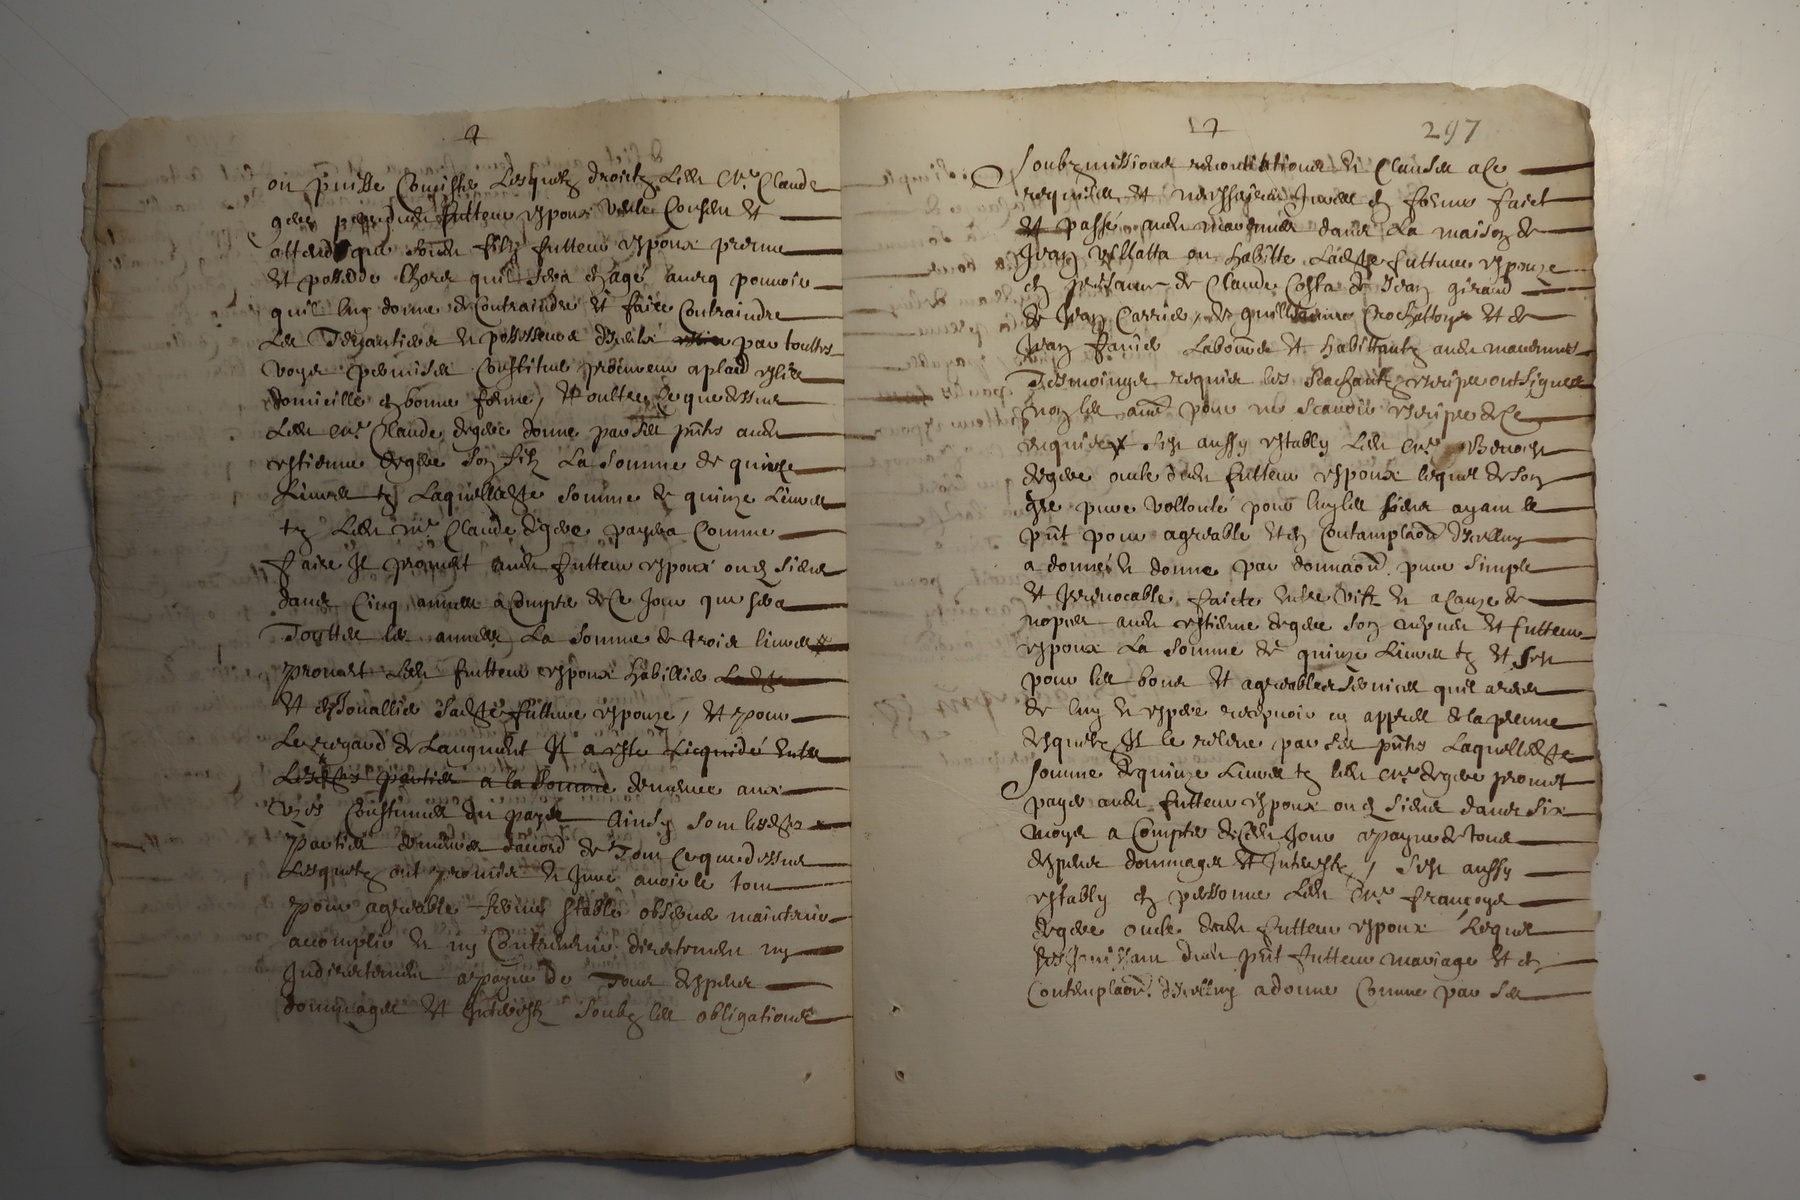 ou puisse Consister Lesquelz droictz Led Me Claude
attendu que led filz futteur espoux prenne
et possedde lhors quil sera en agé aueq pouuoir
quil luy donne de Contraindre et faire Contraindre
Les Tenantiers et possesseurs diceluÿ par touttes
voyes permises Constitue procureur aplaid eslire
domicille en bonne forme, Et oultre Ce que dessus
Led Me Claude degere donne par Ses pntes aud
estienne degere Son filz La Somme de quinze
Liures tz Laquelle Somme de quinze Liures
tz Led Me Claude degere payera Comme
faire Il promet aud futteur espoux ou es Siens
dans Cinq annees a Compter de Ce Jour que sera
Touttes les annees La Somme de trois liures
promet Led futteur espoux habillier
et enJouallier Ladte future espouze, et pour
Le regard de Laugment Il a esté
demeure aux
Vz et Coustumes du payz Ainsy Sont lesdtes
Parties demeurées daccord de Tout Ce que dessus
Lesquelz ont promis et Juré auoir le tout
pour agreable ferme stable obseruer maintenir
accomplir et ny Contreuenir directement ny
Indirectement a payne de Tous despens
dommages et interestz Soubz les obligations
297
Soubzmissions renontiations et Clauses a Ce
requises et necessaires Juree en forme faict
et passé aud mandement dans La maison de
Jean Villatta ou habitte Ladte future espouze
en presance de Claude Costa de Jean giraud
de Jean Carrier, de guillaume Crochatton et de
Jean fanier Laboureurs et habittantz aud mandement
Tesmoings requis les Sachantz escripre ont Signes
non les autres pour ne Scauoir escripre de Ce
enquis Sest aussy estably Led Me Benoist
degere oncle dud futteur espoux lequel de Son
gré pure vollonté pour luy les Siens ayant le
pnt pour agreable et en Contamplaon dicelluy
a donné et donne par donnaon pure Simple
et Irreuocable faicte entre vifz et a Cauze de
nopces aud estienne degere Son nepueu et futteur
espoux La Somme de quinze Liures tz et Sest
pour les bons et agreables Seruices quil a receu
de luy et espere receuoir cy appres de la preuue
desquelz Il le releue par Ses pntes Laquelle dte
Somme de quinze Liures tz led Me degere promet
payer aud futteur espoux ou es Siens dans Six
moys a Compter de Ced Jour a payne de tous
despens dommages et Interestz, Sest aussy
estably en personne Led Me francoys
degere oncle dud futteur espoux Lequel
pnt futteur mariage et en
Contemplaon dicelluy a donne Comme par Ses